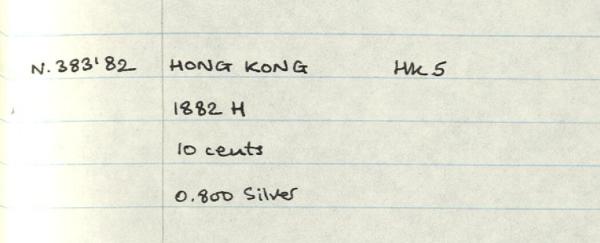 N.383'82 HONG KONG HK5
1882 H
10 cents
0.800 Silver